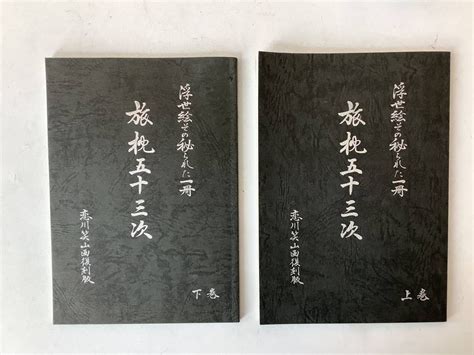 浮世絵その秘られた一冊
旅枕五十三次
恋川笑山画復刻版
上巻
浮世絵その秘られた一冊
旅枕五十三次
恋川笑山画復刻版
下巻